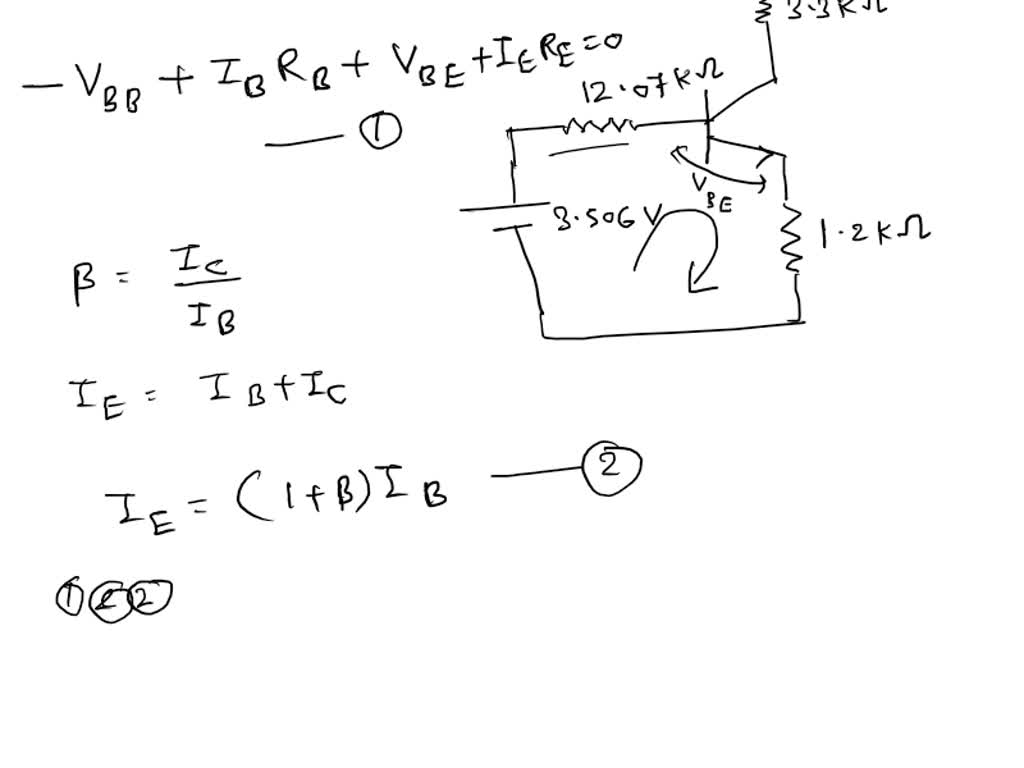 3.3KΩ
- V_BB + I_B R_B + V_BE + I_E R_E = 0
12.07kΩ
①
V_BE
3.506 V
1.2KΩ
β = I_C / I_B
I_E = I_B + I_C
I_E = (1+β) I_B ②
① & ②